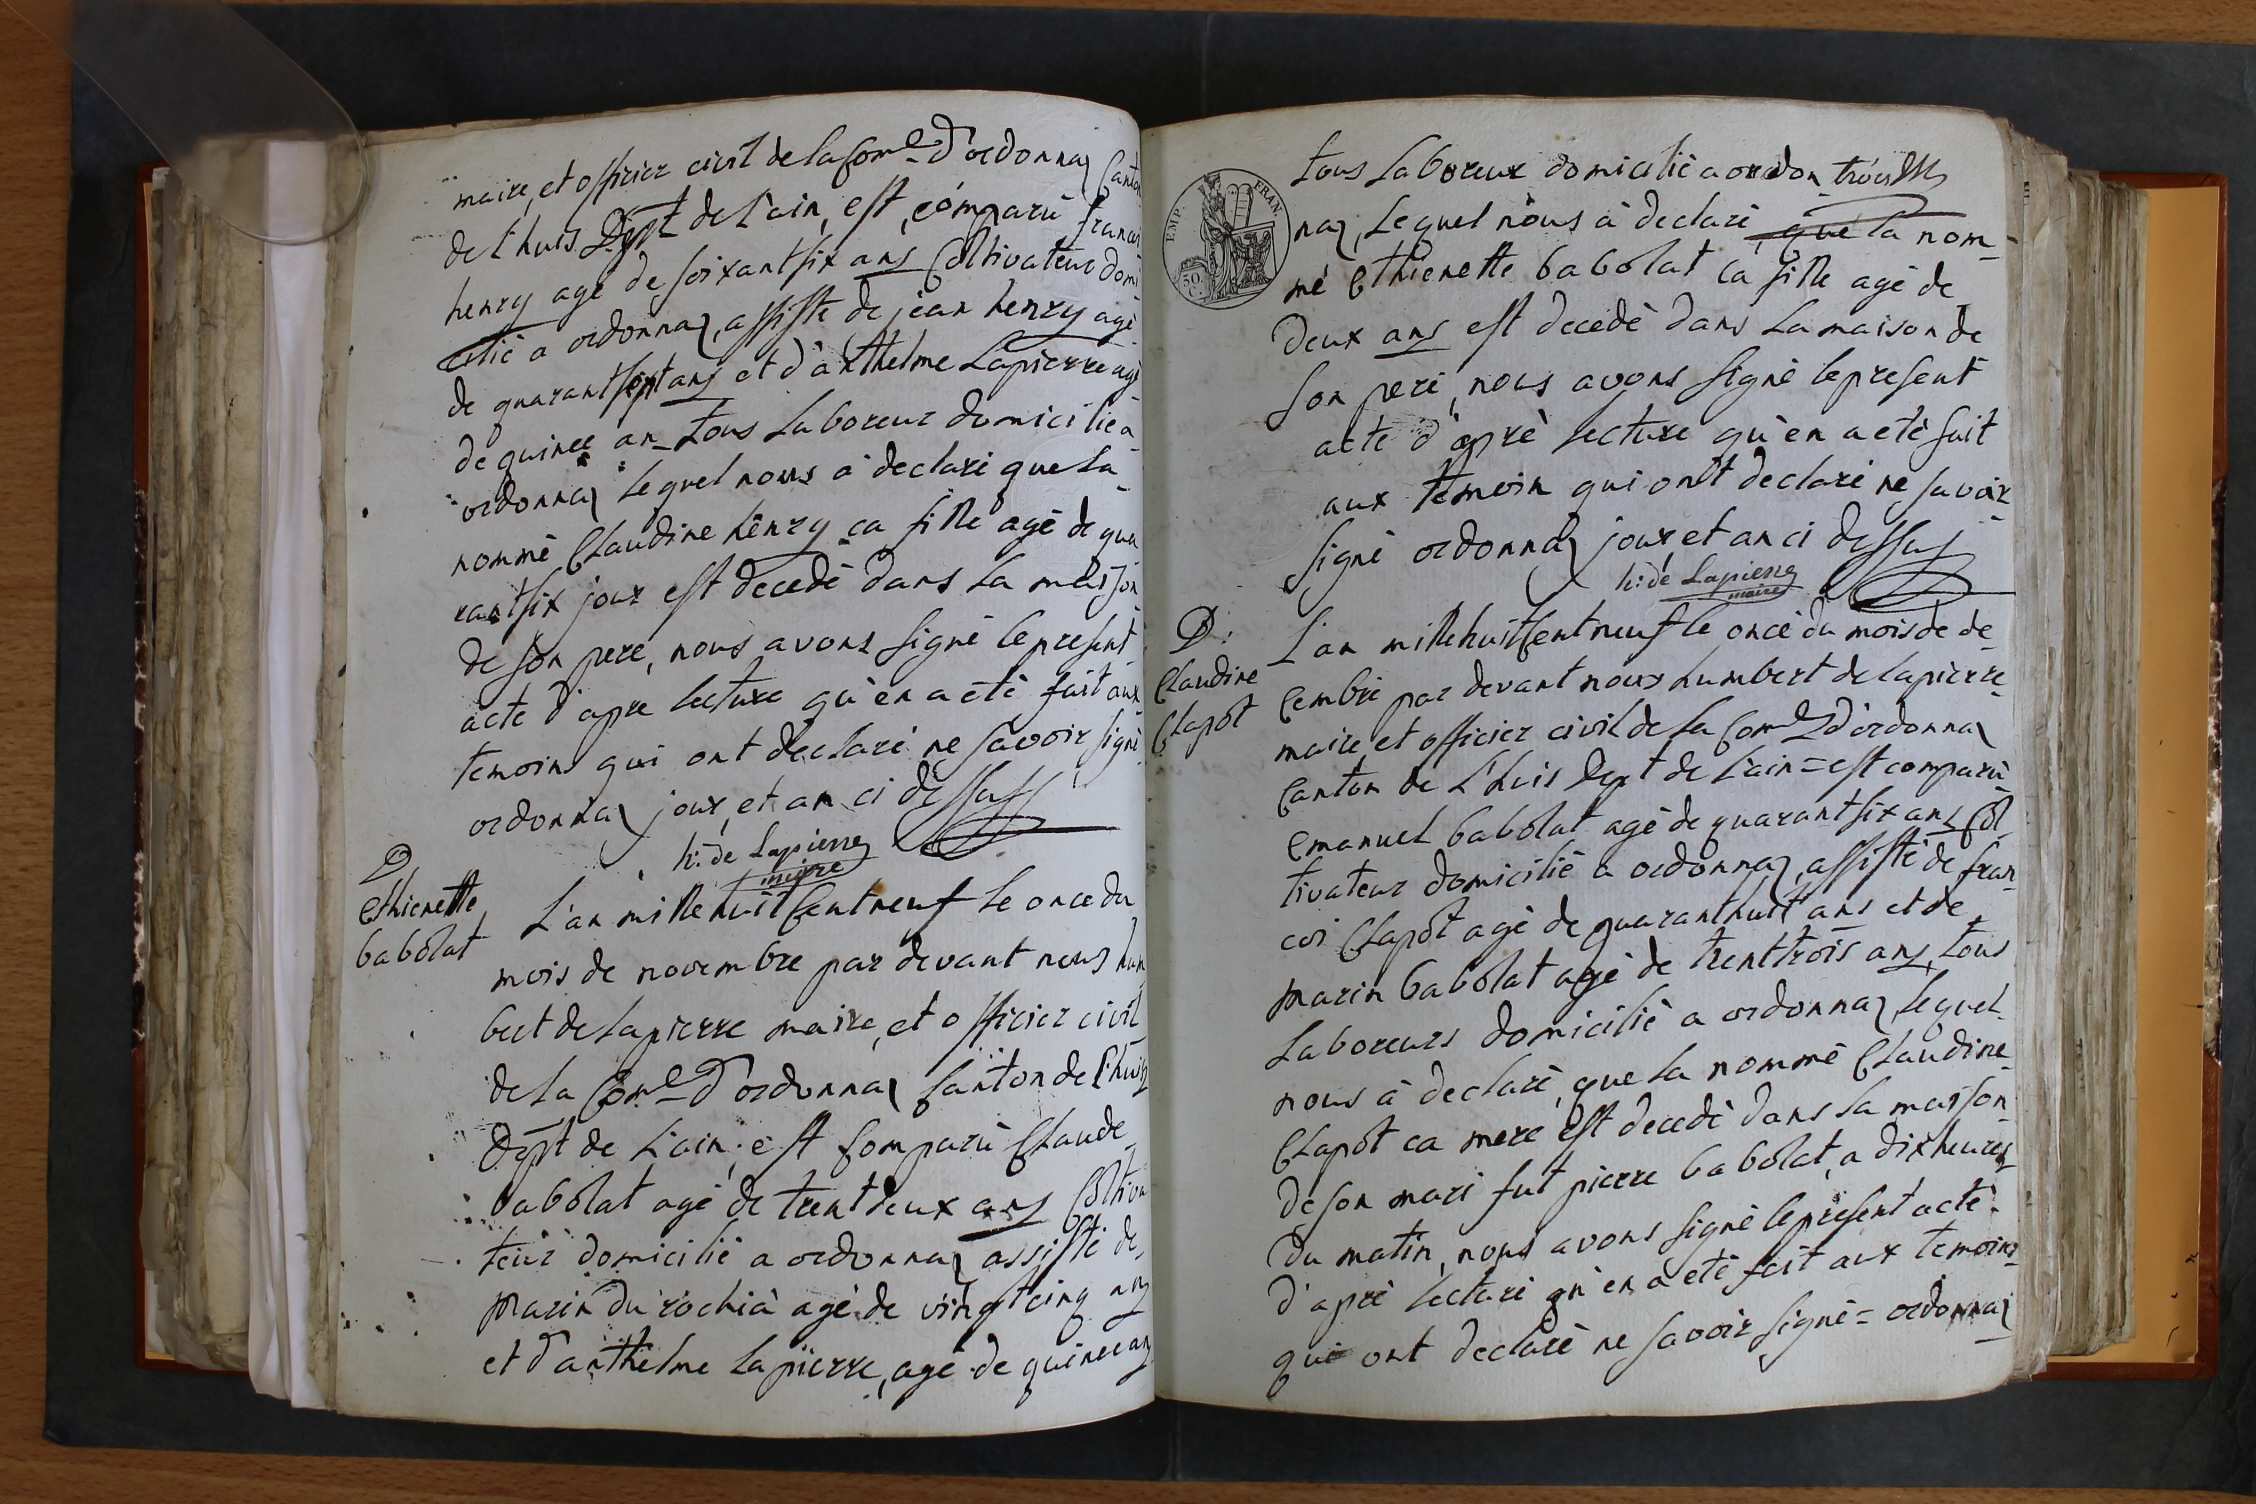 maire, et officier civil de la Com.e d'ordonnaz Canton
de l'huis Dept de L'ain, est, comparu francoi
henry agé de soixantsix ans Coltivateur domi
cilié a ordonnaz, assiste de jean henry agé
de quarantsept ans et d'anthelme Lapierre agé
de quince an tous Laboreur domicilié a
ordonnaz lequel nous à declaré que la
nommé Claudine henry ca fille agé de qua
rantsix jour est decedé dans la maison
de son peré, nous avons signé le present
acte d'apre lecture qu'en a eté fait aux
temoins qui ont declaré ne savoir signé
ordonnaz jour, et an ci dessus
h: de Lapierre
maire
D
Ethienette
babolat
L'an mille huit Cent neuf le once du
mois de novembre par devant nous hum
bert de lapierre maire, et officier civil
de la Com.e d'ordonnaz Canton de l'huis
Dept de L'ain, est Comparu Claude
babolat agé de trent deux ans Coltiva
teur domicilié a ordonnaz assisté de
Marin du rochià agé de vingt cinq ans
et d'anthelme Lapierre, agé de quince ans
EMP. FRAN.
50
C.
tous Laboreur domicilié a ordon
naz, lequel nous à declaré, que la nom-
mé Ethienette babolat ca fille agé de
deux ans est decedé dans la maison de
son peré, nous avons signé le present
acte d'aprè lecture qu'en a eté fait
aux temoin qui ont declaré ne savoir
signé ordonnaz jour, et an ci dessus
h: de Lapierre
maire
D:
Claudine
Clapot
L'an mille huit Cent neuf le once du mois de de
Cembre par devant nous humbert de lapierre
maire et officier civil de la Com.e d'ordonnaz
Canton de L'huis Dept de L'ain = est comparu
Emanuel babolat agé de quarantsix ans Col
tivateur domicilié a ordonnaz, assisté de fran
coi Clapot agé de quaranthuit ans et de
Marin babolat agé de trenttrois ans, tous
Laboreurs domicilié a ordonnaz, lequel
nous à declaré, que la nommé Claudine
Clapot ca mere est decedé dans la maison
de son mari fut pierre babolat, a dix heures
du matin, nous avons signé le present acte
d'apré lecture qu'en a eté fait aux temoins
qui ont declaré ne savoir signé = ordonnaz